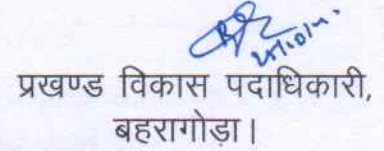 प्रखण्ड विकास पदाधिकारी,
बहरागोड़ा।